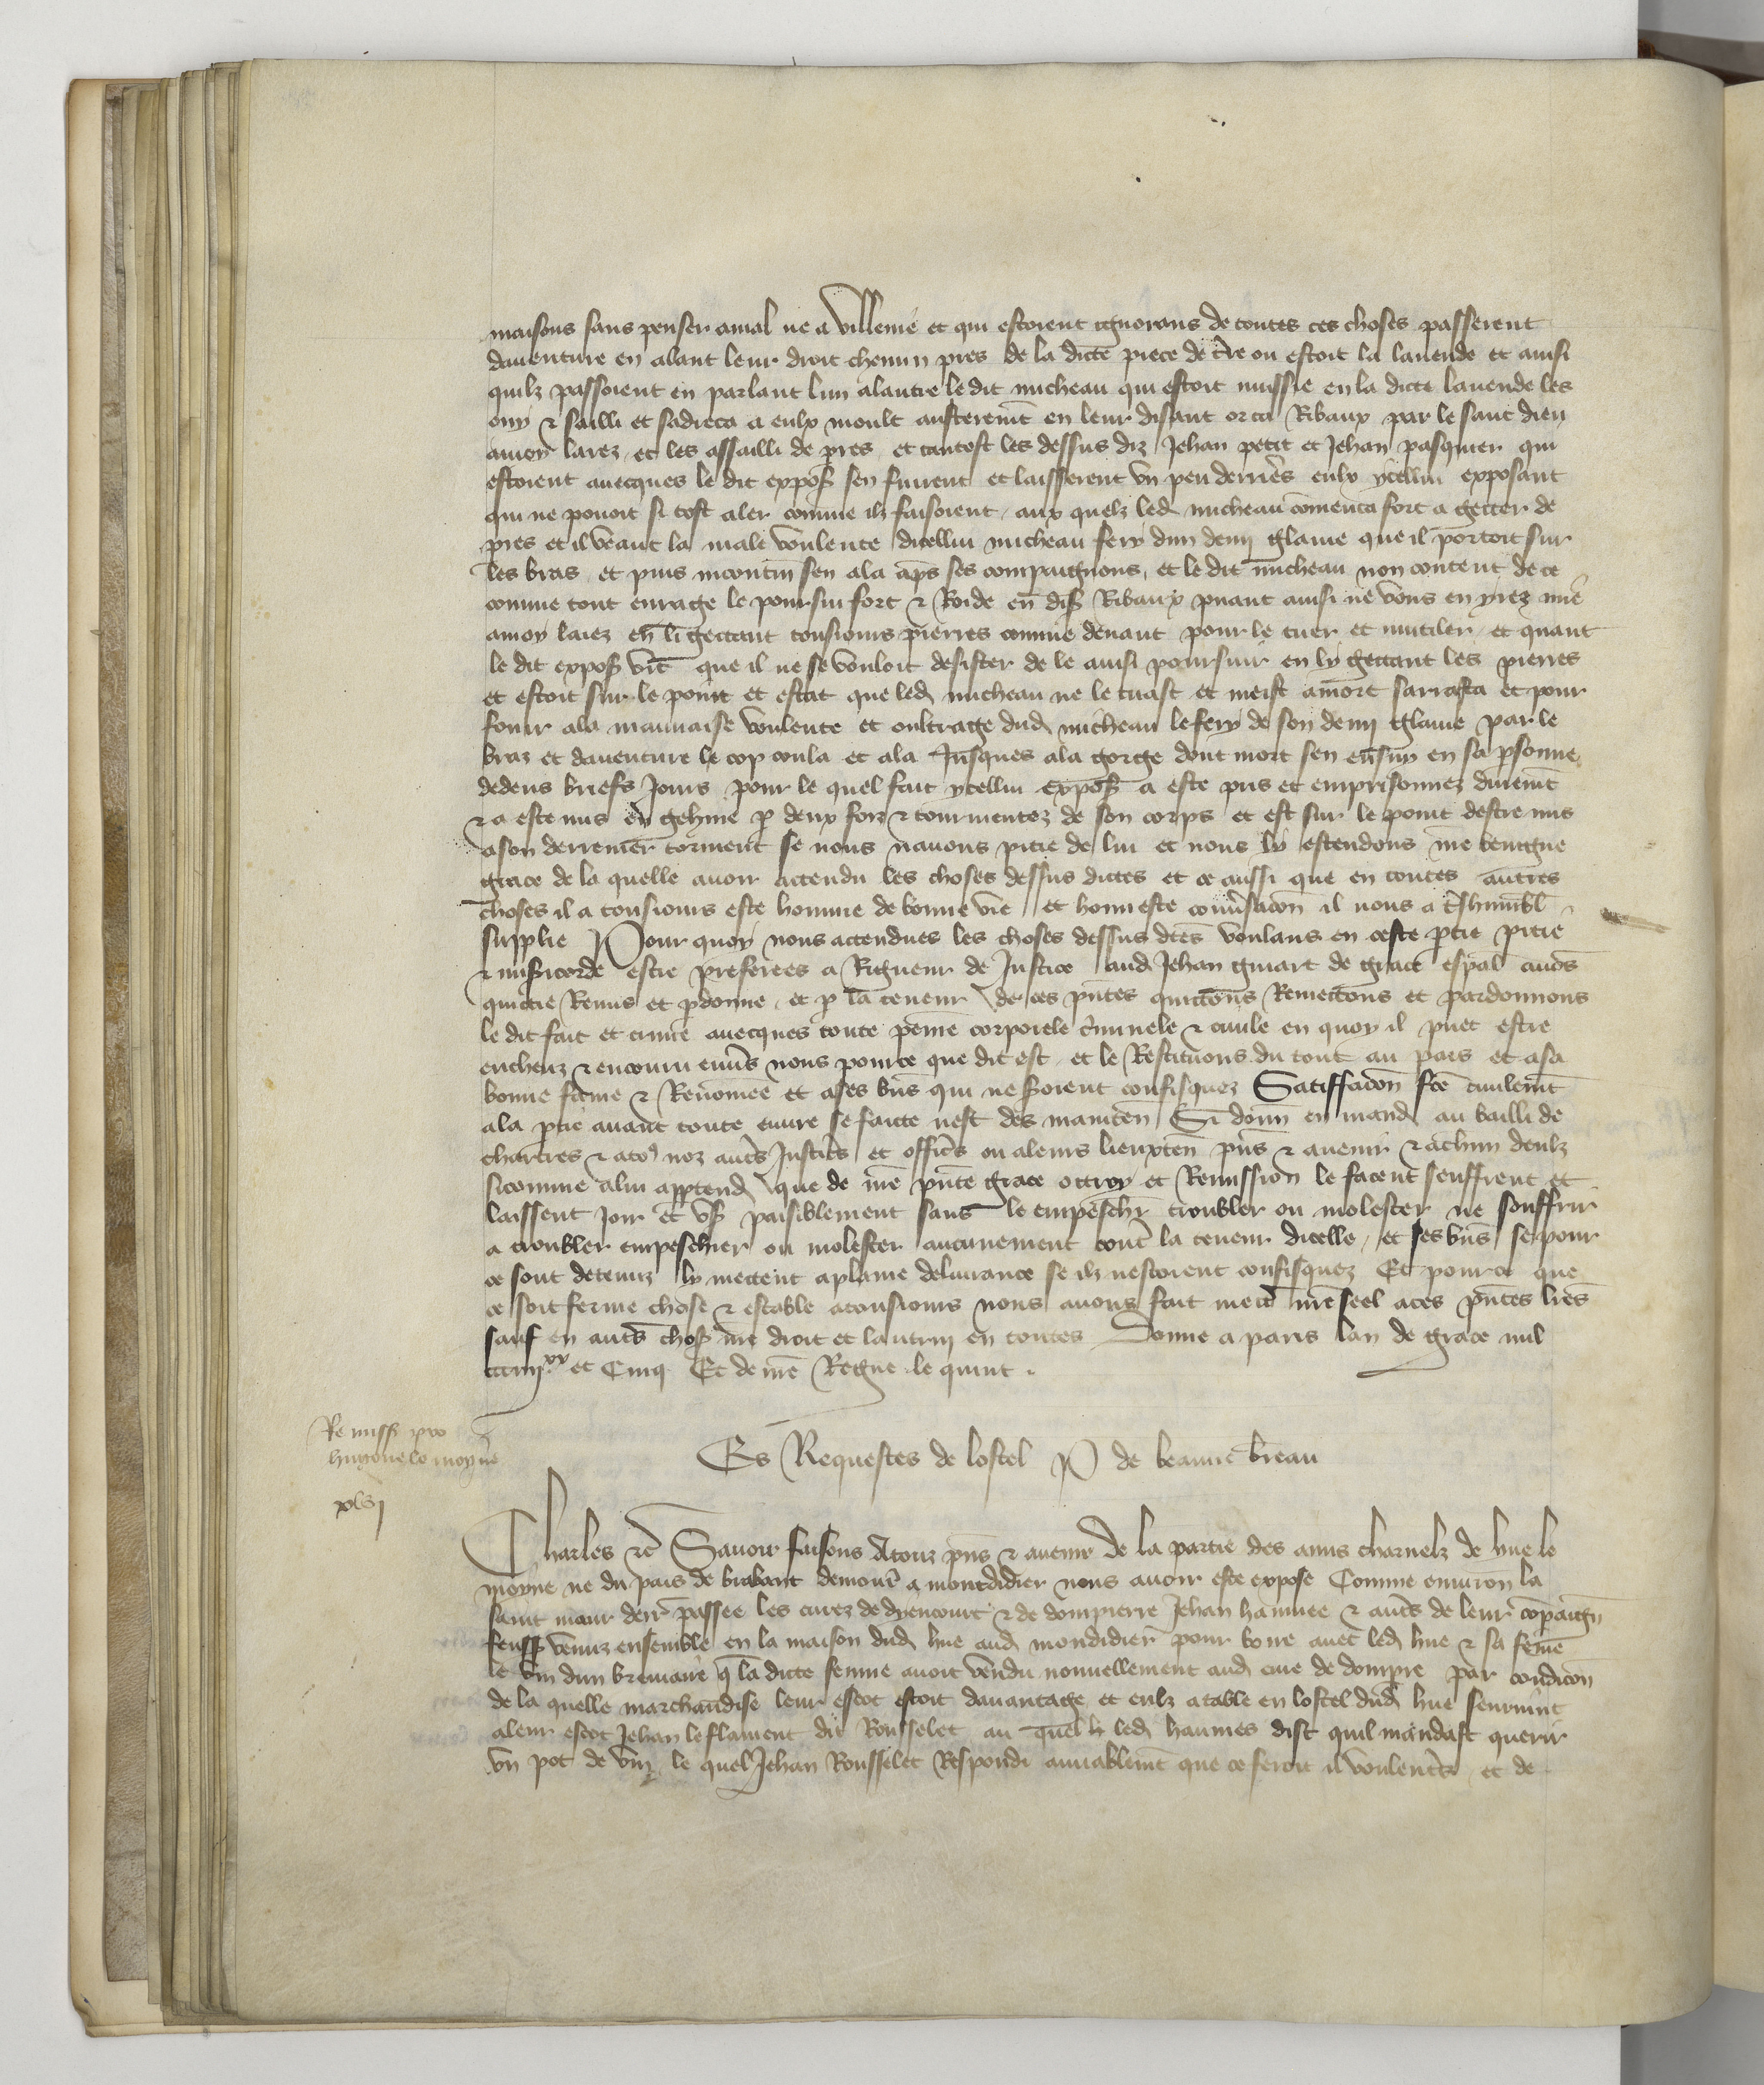 maisons sans penser a mal ne a villenie et qui estoient ignorans de toutes ces choses passerent
daventure en alant leur droit chemin pres de la dicte piece de tre ou estoit la lavende et ainsi
quilz passoient en parlant lun a lautre le dit micheau qui estoit mussie en la dicte lavende les
ouy & sailli et sadreca a eulx moult austeremt en leur disant or ca Ribaux par le sanc dieu
a moy larez et les assailli de pres et tantost les dessus diz Jehan petit et Jehan pasquier qui
estoient avecques le dit expos sen fuirent et laisserent un peu derries eulx ycellui exposant
qui ne povoit si tost aler comme ilz faisoient aux quelz led micheau comenca fort a getter de
pres et il veant la male voulente dicellui micheau fery dun demi glaive que il portoit sur
les bras et puis incontin sen ala aps ses compaignons et le dit micheau non content de ce
comme tout enrage le poursui fort & Roide en dis Ribaux puant ainsi ne vous en yrez mie
a moy laiez en li gettant tousiours pierres comme devant pour le tuer et mutiler et quant
le dit expos vit que il ne se vouloit desister de le ainsi poursuir en ly gettant les pierres
et estoit sur le point et estat que led micheau ne le tuast et meist a mort sarresta et pour
fouir a la mauvaise voulente et oultrage dud micheau le fery de son demi glaive par le
braz et daventure le cop coula et ala Jusques a la gorge dont mort sen ensuy en sa psonne
dedens briefs Jours pour le quel fait ycellui expos a este pris et emprisonnez duremt
& a este mis en gehine p deux foiz & tourmentez de son corps et est sur le point destre mis
a son derrenier torment se nous navons pitie de lui et nous ly estendons nre benigne
grace de la quelle avoir attendu les choses dessus dictes et ce aussi que en toutes autres
choses il a tousiours este homme de bonne vie et honneste conversacon il nous a tshumbl
supplie Pour quoy nous attendues les choses dessus dtes voulans en ceste ptie pitie
& misicorde estre preferees a Rigueur de Justice aud Jehan guiart de grace espal avos
quictie Remis et pdonne et p la teneur de ces pntes quictons Remectons et pardonnons
le dit fait et crime avecques toute peine corporele criminele & civile en quoy il puet estre
encheuz & encouru envs nous pour ce que dit est et le Restituons du tout au pais et a sa
bonne fame & Renomee et a ses bns qui ne seroient confisquez Satisfacon fte civilemt
a la ptie avant toute euvre se faicte nest des mainten Si donn en mand au bailli de
chartres & a to9 noz auts Justices et offics ou a leurs lieuxten pns & avenir & a chun deulz
sicomme a lui apptend que de nre pnte grace ottroy et Remission le facent seuffrent et
laissent Joir et us paisiblement sans le empeschr troubler ou molester ne souffrir
a troubler empeschier ou molester aucunement contre la teneur dicelle et ses bns se pour
ce sont detenuz ly mettent a plaine delivrance se ilz nestoient confisquez Et pour ce que
ce soit ferme chose & estable a tousiours nous avons fait mettre nre seel a ces pntes lres
sauf en auts chos nre droit et lautruy en toutes Donne a paris lan de grace mil
ccc iiij xx et Cinq Et de nre Regne le quint
Es Requestes de lostel P de beaune breau
Remiss pro
hugone le moyne
xlvj
Charles etc Savoir faisons A touz pns & avenir de la partie des amis charnelz de hue le
moyne ne du pais de brabant demour a montdidier nous avoir este expose Comme environ la
saint maur derr passee les curez de dyencourt & de dompierre Jehan haimee & auts de leur compaign
feuss venuz ensemble en la maison dud hue aud mondidier pour boire avec led hue & sa feme
le vin dun breviaire q la dicte femme avoit vendu nouvellement aud cure de dompre par condicon
de la quelle marchandise leur escot estoit davantage et eulz a table en lostel dud hue seurvint
a leur escot Jehan le flament dit Rousselet au quel led haimes dist quil mandast querir
un pot de vin le quel Jehan Rousselet Respondi amiablemt que ce feroit il voulents et de